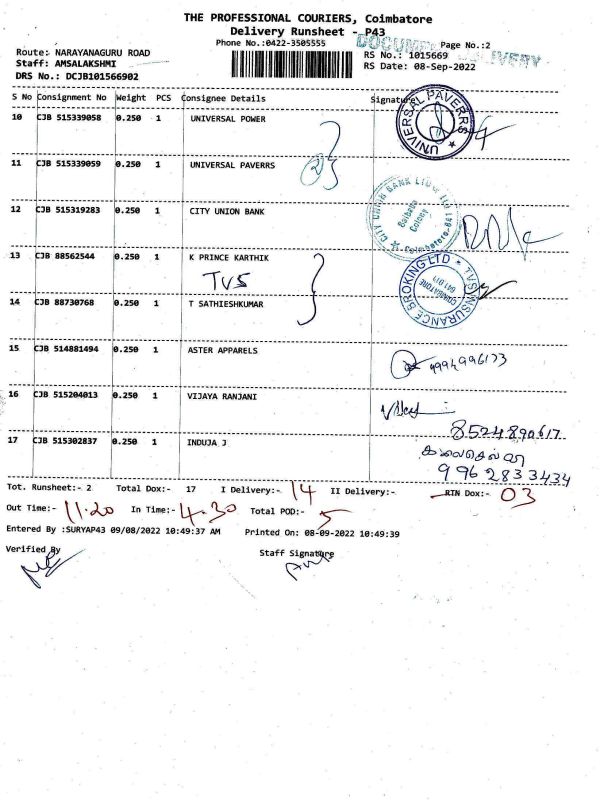 THE PROFESSIONAL COURIERS, Coimbatore
Delivery Runsheet - P43
Phone No.:0422-3505555
Page No.:2
Route: NARAYANAGURU ROAD
RS No.: 1015669
Staff: AMSALAKSHMI
RS Date: 08-Sep-2022
DRS No.: DCJB101566902
S No Consignment No Weight PCS Consignee Details Signature
10 CJB 515339058 0.250 1 UNIVERSAL POWER
UNIVERSAL PAVERRS
11 CJB 515339059 0.250 1 UNIVERSAL PAVERRS
12 CJB 515319283 0.250 1 CITY UNION BANK
CITY UNION BANK LTD
Saibaba Colony
Coimbatore-641
13 CJB 88562544 0.250 1 K PRINCE KARTHIK
TVS
TVS INSURANCE BROKING LTD
COIMBATORE
14 CJB 88730768 0.250 1 T SATHIESHKUMAR
15 CJB 514881494 0.250 1 ASTER APPARELS
9994996173
16 CJB 515204013 0.250 1 VIJAYA RANJANI
8524890617
17 CJB 515302837 0.250 1 INDUJA J
கலைசெல்வி
9962833434
Tot. Runsheet:- 2 Total Dox:- 17 I Delivery:- 14 II Delivery:- RTN Dox:- 03
Out Time:- 11.20 In Time:- 4.30 Total POD:- 5
Entered By :SURYAP43 09/08/2022 10:49:37 AM Printed On: 08-09-2022 10:49:39
Verified By
Staff Signature